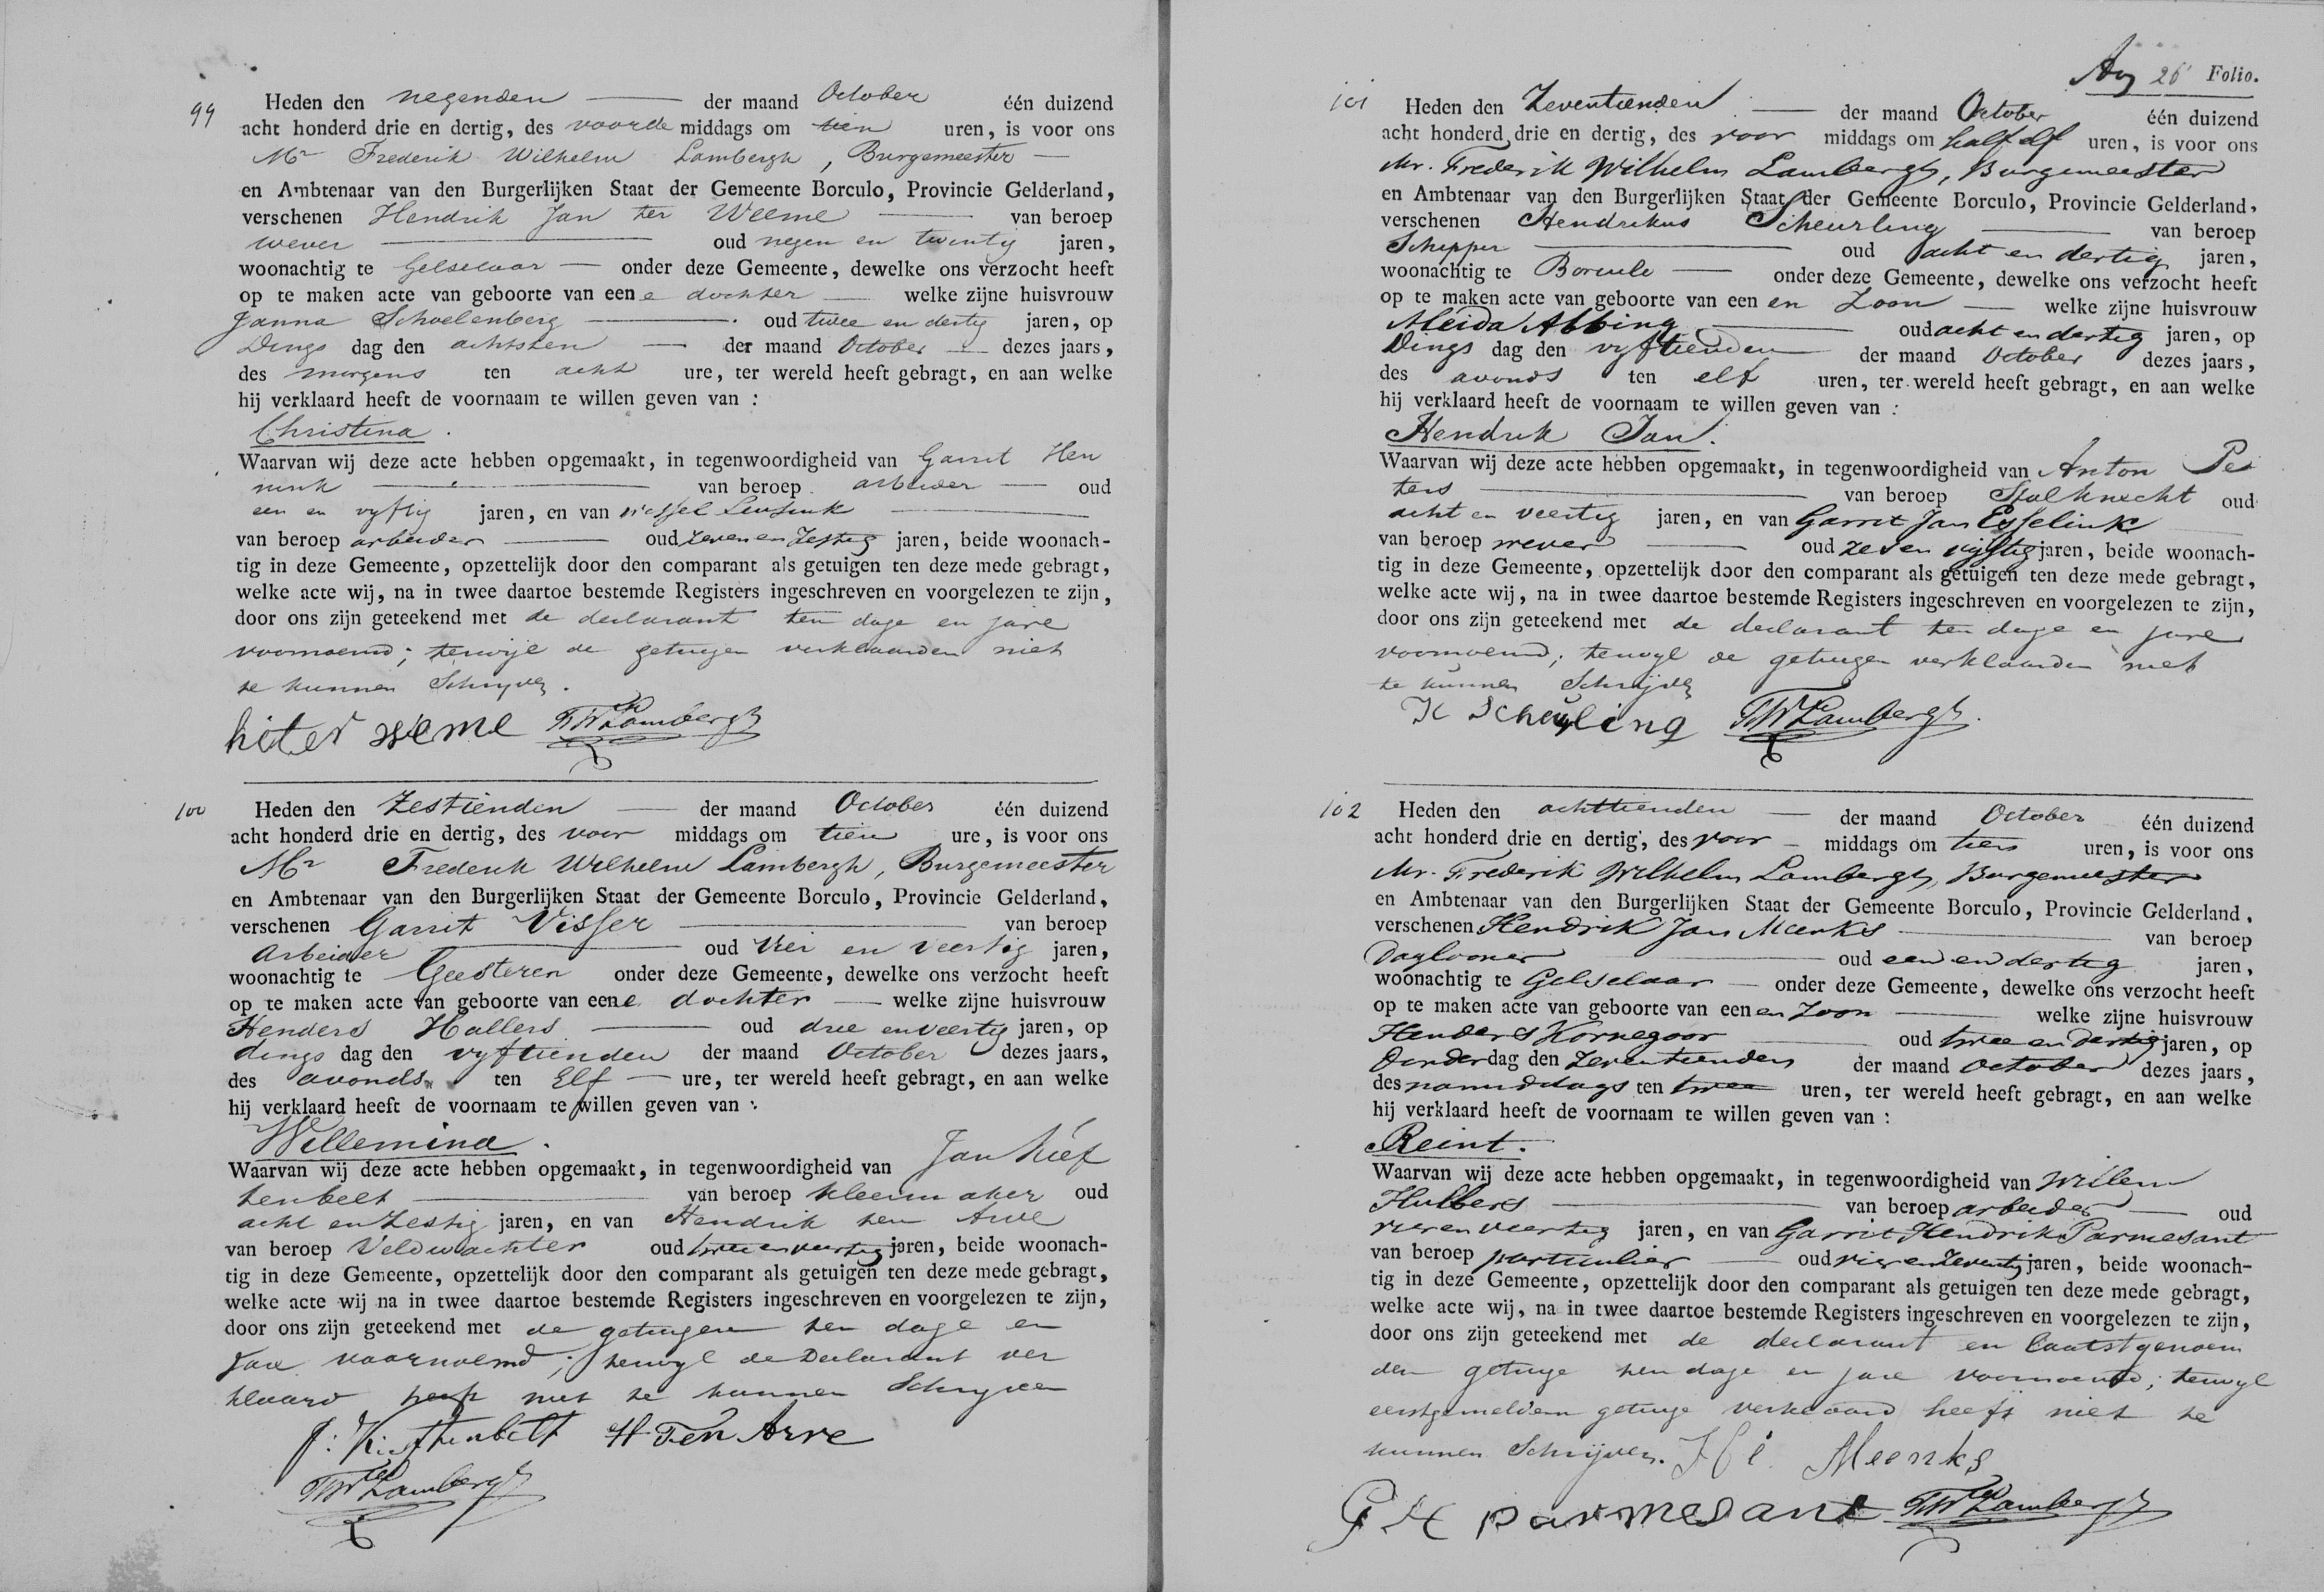 99 Heden den negenden der maand October één duizend
acht honderd drie en dertig, des voorde middags om tien uren, is voor ons
Mr Frederik Wilhelm Lambergh, Burgemeester
en Ambtenaar van den Burgerlijken Staat der Gemeente Borculo, Provincie Gelderland,
verschenen Hendrik Jan ter Weeme van beroep
wever oud negen en twentig jaren,
woonachtig te Gelselaar onder deze Gemeente, dewelke ons verzocht heeft
op te maken acte van geboorte van eene dochter welke zijne huisvrouw
Janna Schoelenberg oud twee en dertig jaren, op
Dings dag den achtsten der maand October dezes jaars,
des morgens ten acht ure, ter wereld heeft gebragt, en aan welke
hij verklaard heeft de voornaam te willen geven van :
Christina.
Waarvan wij deze acte hebben opgemaakt, in tegenwoordigheid van Garrit Hen
nink van beroep arbeider oud
een en vyftig jaren, en van Wessel Leusink
van beroep arbeider oud zeven en zestig jaren, beide woonach-
tig in deze Gemeente, opzettelijk door den comparant als getuigen ten deze mede gebragt,
welke acte wij, na in twee daartoe bestemde Registers ingeschreven en voorgelezen te zijn,
door ons zijn geteekend met de declarant ten dage en jare
voornoemd; terwijl de getuigen verklaarden niet
te kunnen Schryven.
h i ter weme FWLambergh
100 Heden den Zestienden der maand October één duizend
acht honderd drie en dertig, des voor middags om tien ure, is voor ons
Mr Frederik Wilhelm Lambergh, Burgemeester
en Ambtenaar van den Burgerlijken Staat der Gemeente Borculo, Provincie Gelderland,
verschenen Garrit Visser van beroep
Arbeider oud vier en veertig jaren,
woonachtig te Geesteren onder deze Gemeente, dewelke ons verzocht heeft
op te maken acte van geboorte van eene dochter welke zijne huisvrouw
Henders Hallers oud drie en veertig jaren, op
dings dag den vyftienden der maand October dezes jaars,
des avonds ten Elf ure, ter wereld heeft gebragt, en aan welke
hij verklaard heeft de voornaam te willen geven van :
Willemina.
Waarvan wij deze acte hebben opgemaakt, in tegenwoordigheid van Jan Kief
tenbelt van beroep kleermaker oud
acht en zestig jaren, en van Hendrik ten Arve
van beroep Veldwachter oud twee en veertig jaren, beide woonach-
tig in deze Gemeente, opzettelijk door den comparant als getuigen ten deze mede gebragt,
welke acte wij na in twee daartoe bestemde Registers ingeschreven en voorgelezen te zijn,
door ons zijn geteekend met de getuigen ten dage en
Jare voornoemd; terwyl de Declarant ver
klaard heeft niet te kunnen Schryven
J: Kieftenbelt H Ten Arve
FWLambergh
Aug 26 Folio.
101 Heden den Zeventienden der maand October één duizend
acht honderd drie en dertig, des voor middags om half elf uren, is voor ons
Mr. Frederik Wilhelm Lambergh, Burgemeester
en Ambtenaar van den Burgerlijken Staat der Gemeente Borculo, Provincie Gelderland,
verschenen Hendrikus Scheurling van beroep
Schipper oud acht en dertig jaren,
woonachtig te Borculo onder deze Gemeente, dewelke ons verzocht heeft
op te maken acte van geboorte van een en Zoon welke zijne huisvrouw
Aleida Abbing oud acht en dertig jaren, op
Dings dag den vyftienden der maand October dezes jaars,
des avonds ten elf uren, ter wereld heeft gebragt, en aan welke
hij verklaard heeft de voornaam te willen geven van :
Hendrik Jan.
Waarvan wij deze acte hebben opgemaakt, in tegenwoordigheid van Anton Pe
ters van beroep Stalknecht oud
acht en veertig jaren, en van Garrit Jan Esselink
van beroep wever oud zes en vijftig jaren, beide woonach-
tig in deze Gemeente, opzettelijk door den comparant als getuigen ten deze mede gebragt,
welke acte wij, na in twee daartoe bestemde Registers ingeschreven en voorgelezen te zijn,
door ons zijn geteekend met de declarant ten dage en jare
voornoemd; terwyl de getuigen verklaarden niet
te kunnen Schrijven
H Scheurling FWLambergh.
102 Heden den achttienden der maand October één duizend
acht honderd drie en dertig, des voor middags om tien uren, is voor ons
Mr. Frederik Wilhelm Lambergh, Burgemeester
en Ambtenaar van den Burgerlijken Staat der Gemeente Borculo, Provincie Gelderland,
verschenen Hendrik Jan Meenks van beroep
Daglooner oud een en dertig jaren,
woonachtig te Gelselaar onder deze Gemeente, dewelke ons verzocht heeft
op te maken acte van geboorte van een en Zoon welke zijne huisvrouw
Henders Kornegoor oud twee en dertig jaren, op
Donderdag den Zeventienden der maand October dezes jaars,
des namiddags ten twee uren, ter wereld heeft gebragt, en aan welke
hij verklaard heeft de voornaam te willen geven van :
Reint.
Waarvan wij deze acte hebben opgemaakt, in tegenwoordigheid van Willem
Hulbers van beroep arbeider oud
vier en veertig jaren, en van Garrit Hendrik Parmesant
van beroep particulier oud vier en zeventig jaren, beide woonach-
tig in deze Gemeente, opzettelijk door den comparant als getuigen ten deze mede gebragt,
welke acte wij, na in twee daartoe bestemde Registers ingeschreven en voorgelezen te zijn,
door ons zijn geteekend met de declarant en laatstgenoem
den getuige ten dage en jare voornoemd; terwyl
eerstgemelden getuige verklaard heeft niet te
kunnen Schrijven. H i Meenks
G H parmesant FWLambergh